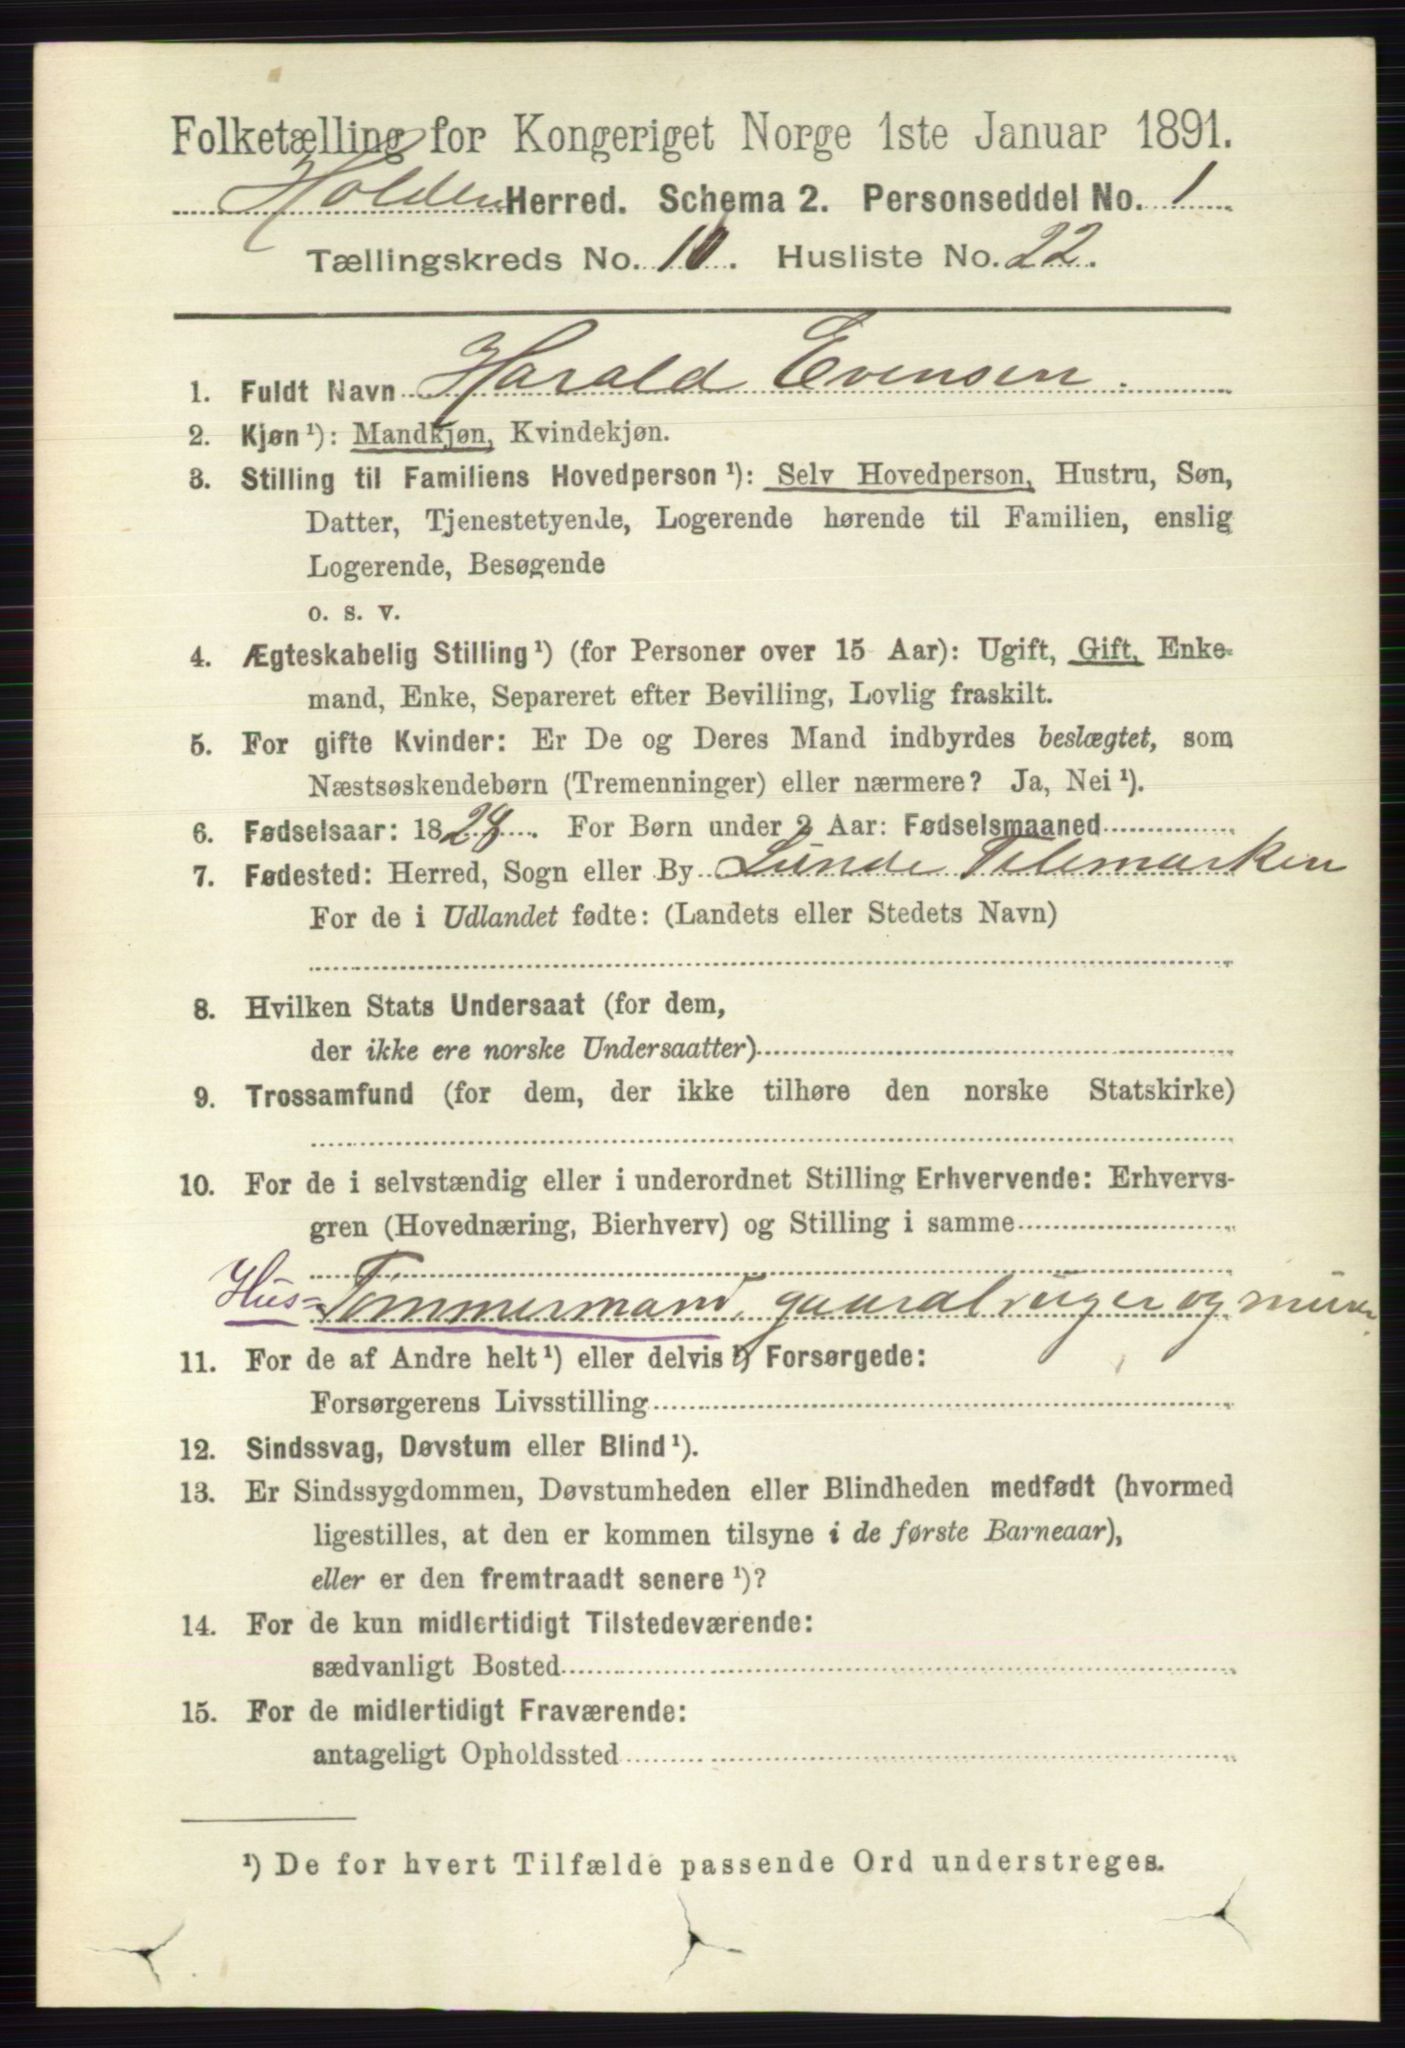 Folketælling for Kongeriget Norge 1ste Januar 1891.
Holden Herred. Schema 2. Personseddel No. 1
Tællingskreds No. 10. Husliste No. 22.
1. Fuldt Navn Harald Evensen.
2. Kjøn¹): Mandkjøn, Kvindekjøn.
3. Stilling til Familiens Hovedperson¹): Selv Hovedperson, Hustru, Søn,
Datter, Tjenestetyende, Logerende hørende til Familien, enslig
Logerende, Besøgende
o. s. v.
4. Ægteskabelig Stilling¹) (for Personer over 15 Aar): Ugift, Gift, Enke-
mand, Enke, Separeret efter Bevilling, Lovlig fraskilt.
5. For gifte Kvinder: Er De og Deres Mand indbyrdes beslægtet, som
Næstsøskendebørn (Tremenninger) eller nærmere? Ja, Nei¹).
6. Fødselsaar: 1828. For Børn under 2 Aar: Fødselsmaaned
7. Fødested: Herred, Sogn eller By Lunde Telemarken
For de i Udlandet fødte: (Landets eller Stedets Navn)
8. Hvilken Stats Undersaat (for dem,
der ikke ere norske Undersaatter)
9. Trossamfund (for dem, der ikke tilhøre den norske Statskirke)
10. For de i selvstændig eller i underordnet Stilling Erhvervende: Erhvervs-
gren (Hovednæring, Bierhverv) og Stilling i samme
Hus- Tømmermand, gaardbruger og murer.
11. For de af Andre helt¹) eller delvis¹) Forsørgede:
Forsørgerens Livsstilling
12. Sindssvag, Døvstum eller Blind¹).
13. Er Sindssygdommen, Døvstumheden eller Blindheden medfødt (hvormed
ligestilles, at den er kommen tilsyne i de første Barneaar),
eller er den fremtraadt senere¹)?
14. For de kun midlertidigt Tilstedeværende:
sædvanligt Bosted
15. For de midlertidigt Fraværende:
antageligt Opholdssted
¹) De for hvert Tilfælde passende Ord understreges.